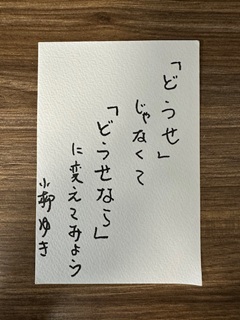 「どうせ」
じゃなくて
「どうせなら」
に変えてみよう
小柳ゆき